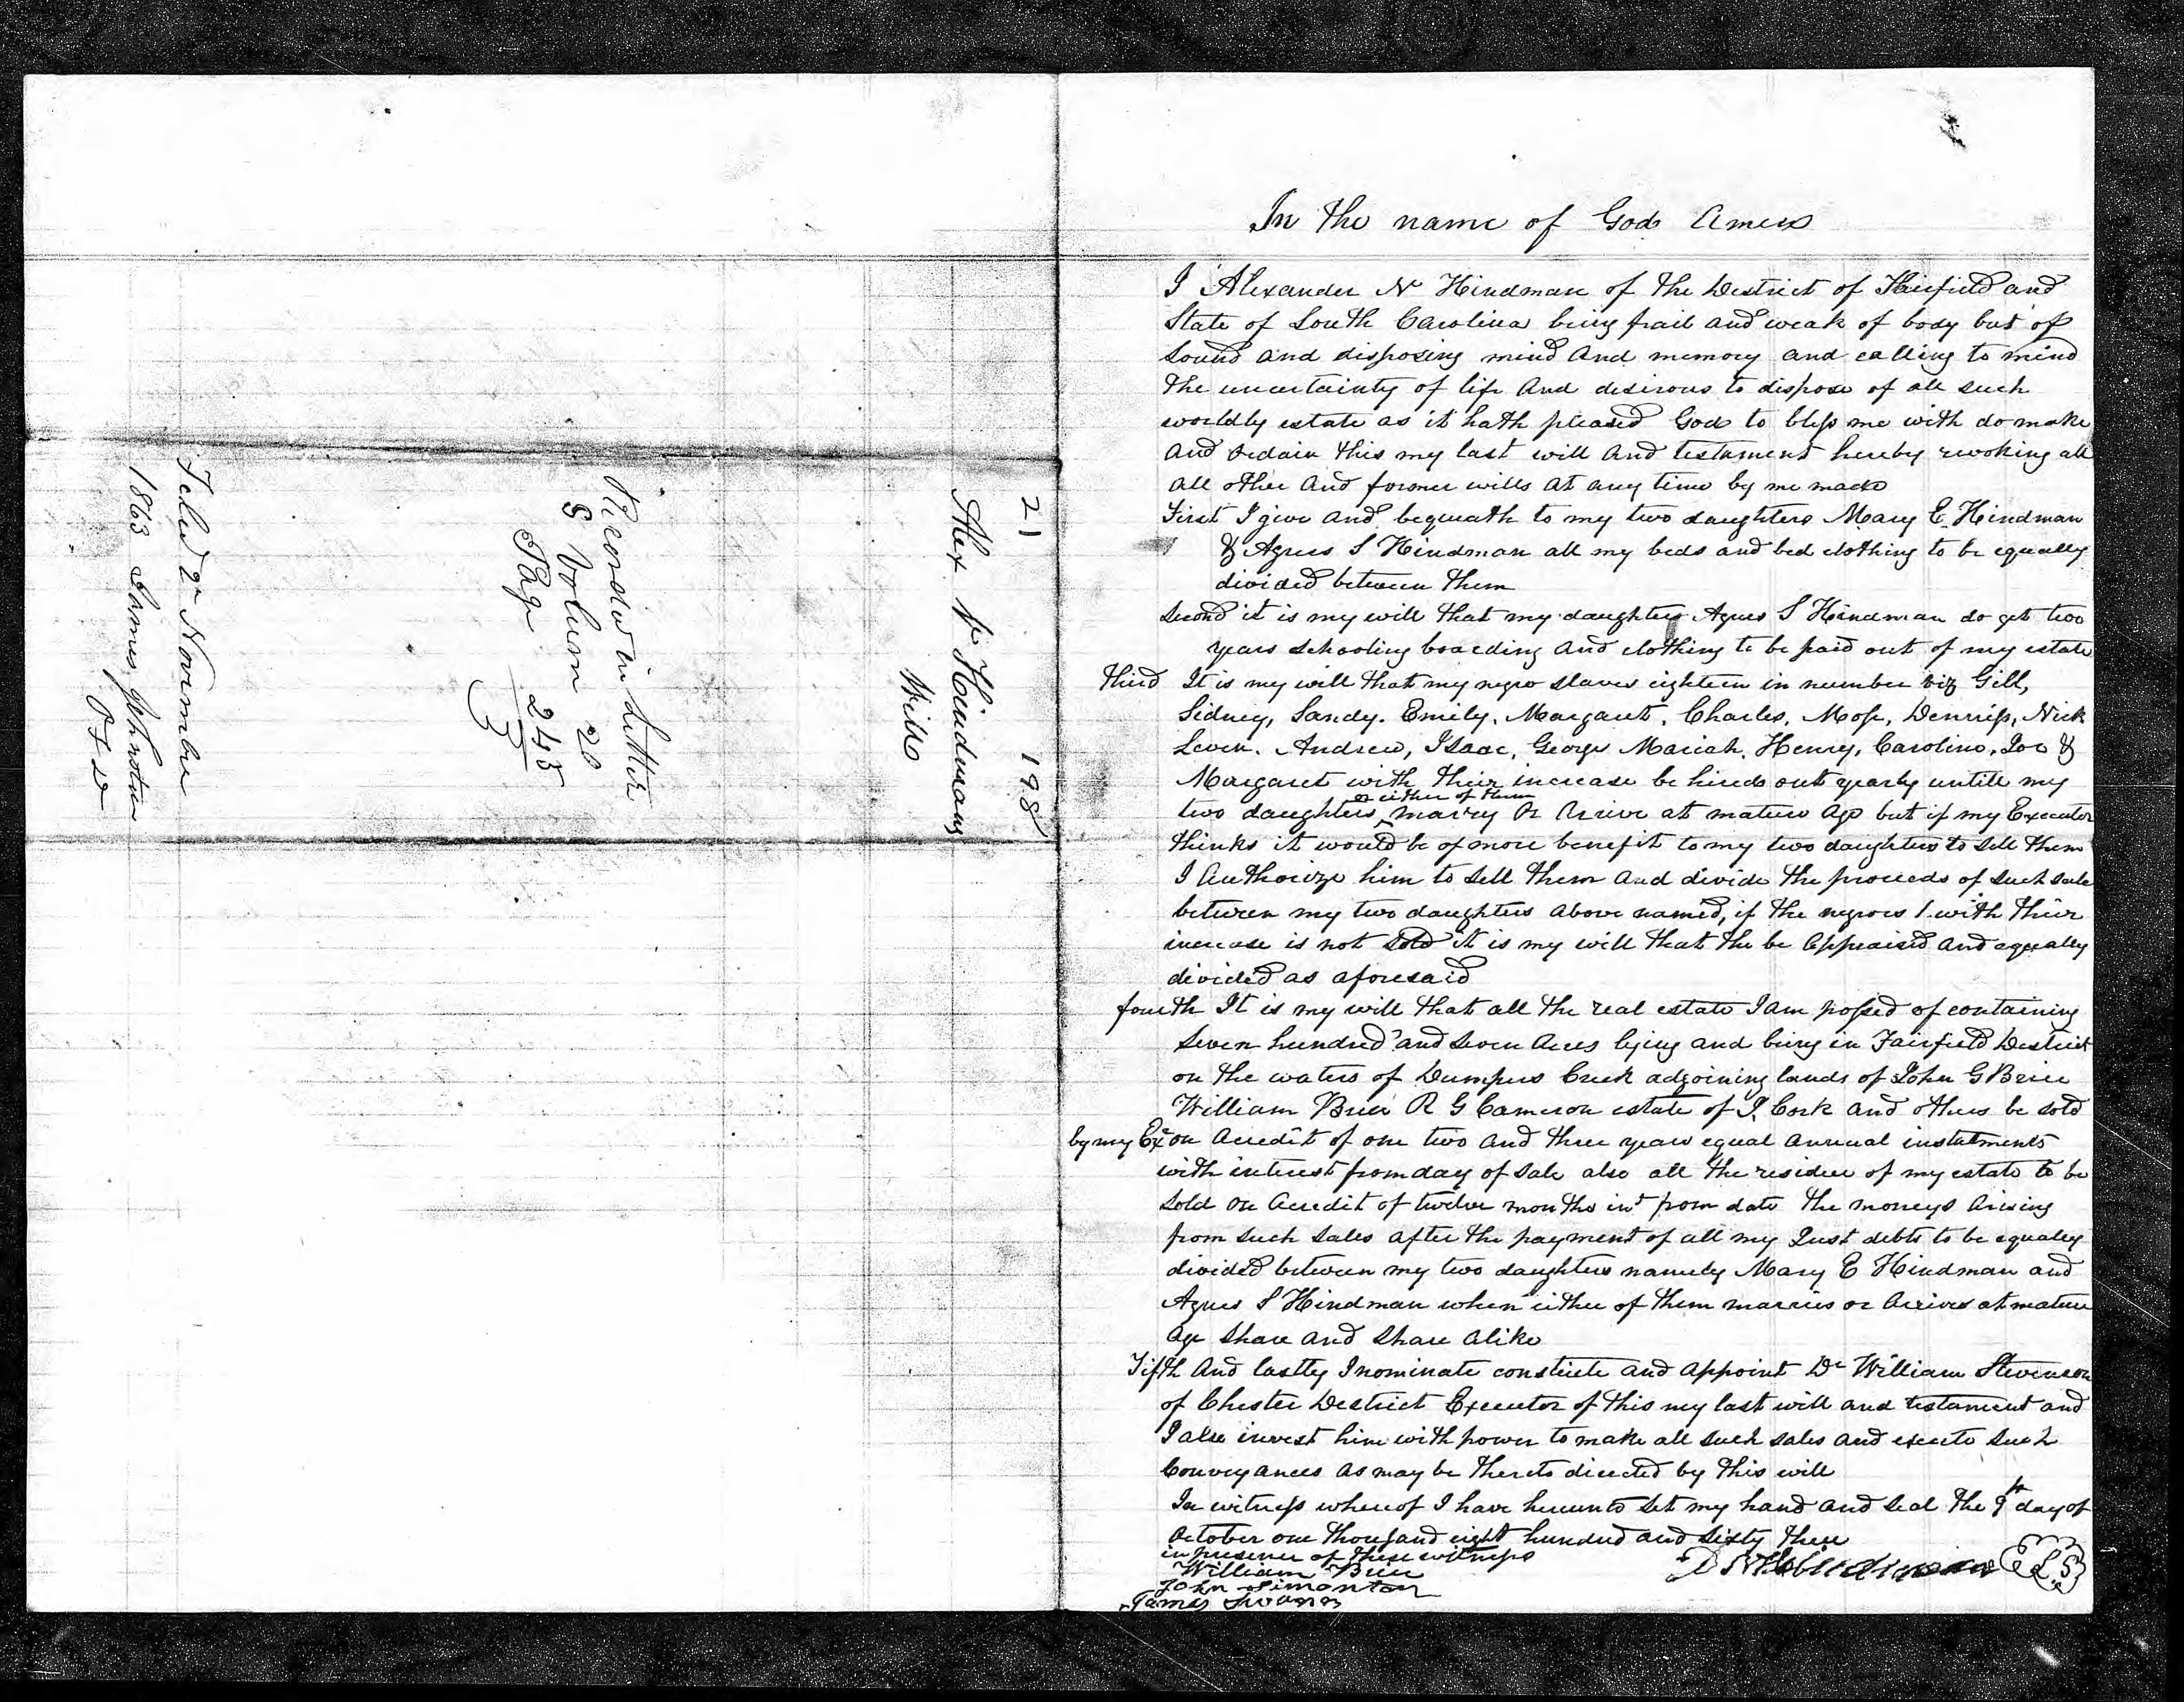 21 198
Alex N Hindmans
Will
Recorded in Letter
S Volum 20
Page 245
Filed 2 November
1863 James Johnston
O F D
In the name of God Amen
I Alexander N Hindman of the District of Fairfield and
State of South Carolina being frail and weak of body but of
sound and disposing mind and memory and calling to mind
the uncertainty of life and desirous to dispose of all such
worldly estate as it hath pleased God to bless me with do make
and ordain this my last will and testament hereby revoking all
all other and former wills at any time by me made
First I give and bequeath to my two daughters Mary E Hindman
& Agnes S Hindman all my beds and bed clothing to be equally
divided between them
Second it is my will that my daughter Agnes S Hindman do get two
years schooling boarding and clothing to be paid out of my estate
Third It is my will that my negro slaves eighteen in number viz Gill,
Sidney, Sandy. Emily, Margaret, Charles, Mose, Dennis, Nick
Leven. Andrew, Isaac, George Mariah, Henry, Caroline, Joe &
Margaret with their increase be hired out yearly untill my
or either of them
two daughters marry or arive at mature age but if my Executor
thinks it would be of more benefit to my two daughters to sell them
I authorize him to sell them and divide the proceeds of such sale
between my two daughters above named, if the negroes with their
increase is not sold it is my will that the be appraised and equally
divided as aforesaid
fourth It is my will that all the real estate I am possed of containing
seven hundred and seven acres lying and being in Fairfield District
on the waters of Dumpers Creek adjoining lands of John G Brice
William Brice R G Cameron estate of J. Cork and others be sold
by my Ex on acredit of one two and three years equal annual instatments
with interest from day of sale also all the residue of my estate to be
sold on acredit of twelve months int from date the moneys arising
from such sales after the payment of all my Just debts to be equaley
divided between my two daughters namely Mary E Hindman and
Agnes S Hindman when either of them marries or arives at mature
age share and share alike
Fifth And lastly I nominate constitute and appoint Dr William Stevenson
of Chester District Executor of this my last will and testament and
I also invest him with power to make all such sales and execute such
Conveyances as may be thereto directed by this will
In witness whereof I have hereunto set my hand and seal the 9th day of
October one thousand eight hundred and sixty three
in presence of these witness
William Brice
John Simonton
James Swann
A N Hindman L.S.